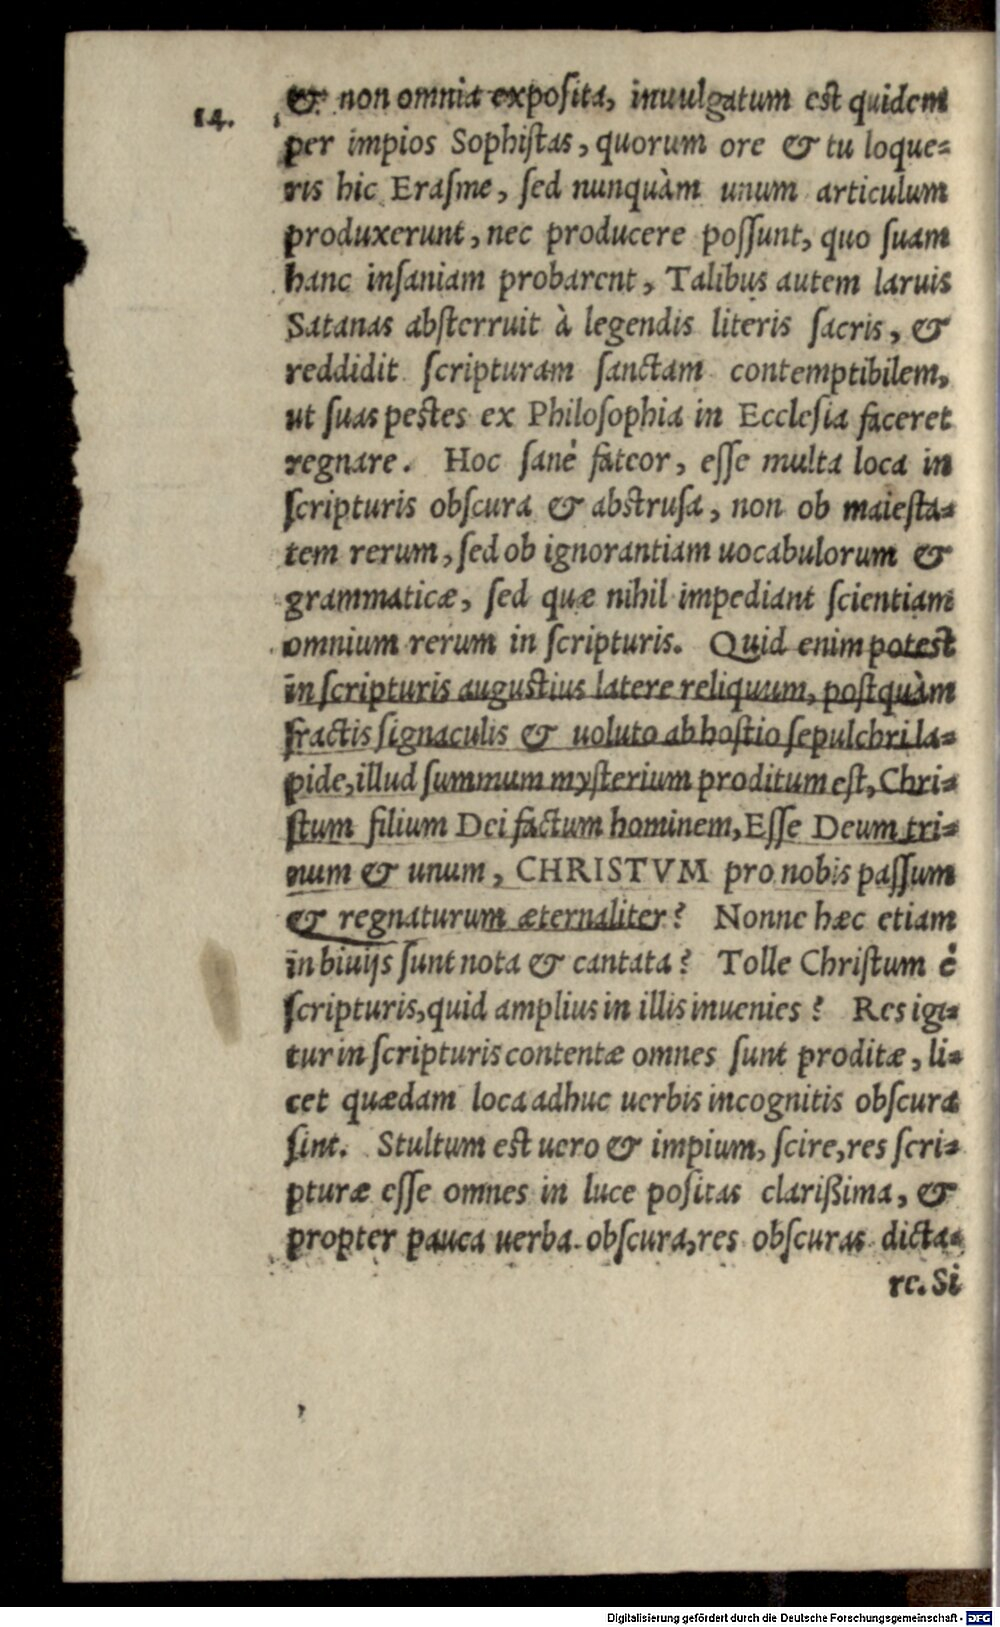 14.
& non omnia exposita, inuulgatum est quidem
per impios Sophistas, quorum ore & tu loque=
ris hic Erasme, sed nunquàm unum articulum
produxerunt, nec producere possunt, quo suam
hanc insaniam probarent, Talibus autem laruis
Satanas absterruit à legendis literis sacris, &
reddidit scripturam sanctam contemptibilem,
ut suas pestes ex Philosophia in Ecclesia faceret
regnare. Hoc sanè fateor, esse multa loca in
scripturis obscura & abstrusa, non ob maiesta=
tem rerum, sed ob ignorantiam uocabulorum &
grammaticæ, sed quæ nihil impediant scientiam
omnium rerum in scripturis. Quid enim potest
in scripturis augustius latere reliquum, postquàm
fractis signaculis & uoluto ab hostio sepulchri la=
pide, illud summum mysterium proditum est, Chri=
stum filium Dei factum hominem, Esse Deum tri=
num & unum, CHRISTVM pro nobis passum
& regnaturum æternaliter? Nonne hæc etiam
in biuijs sunt nota & cantata? Tolle Christum è
scripturis, quid amplius in illis inuenies? Res igi=
tur in scripturis contentæ omnes sunt proditæ, li=
cet quædam loca adhuc uerbis incognitis obscura
sint. Stultum est uero & impium, scire, res scri=
pturæ esse omnes in luce positas clarißima, &
propter pauca uerba obscura, res obscuras dicta=
re. Si
Digitalisierung gefördert durch die Deutsche Forschungsgemeinschaft - DFG